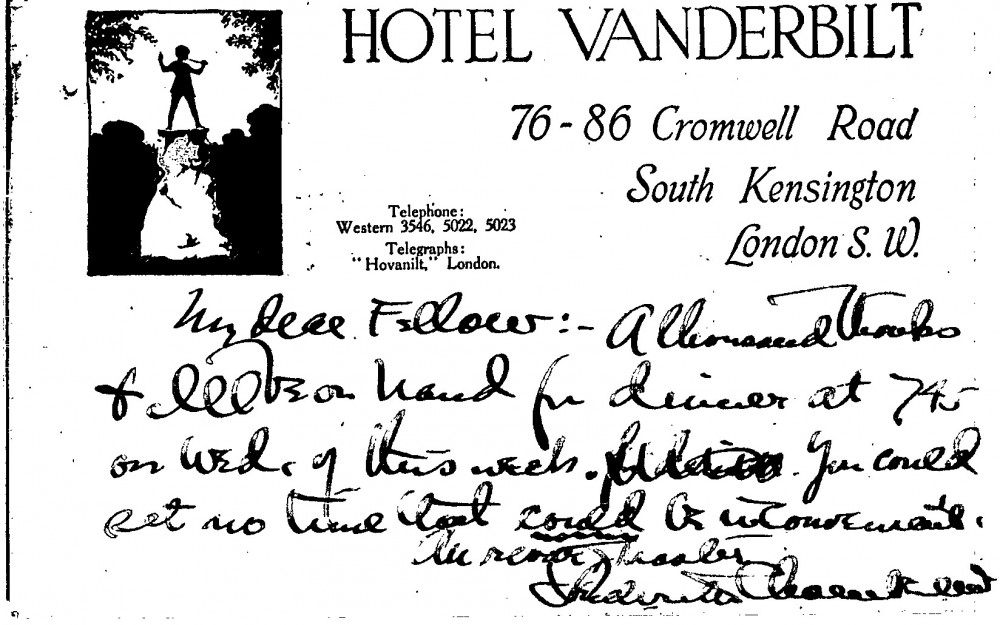 HOTEL VANDERBILT
76-86 Cromwell Road
South Kensington
London S. W.
Telephone:
Western 3546, 5022, 5023
Telegraphs:
"Hovanilt," London.
My dear Fellow:- A thousand thanks
& I'll be on hand for dinner at 745
on Wed. of this week. You could
set no time that could be inconvenient.